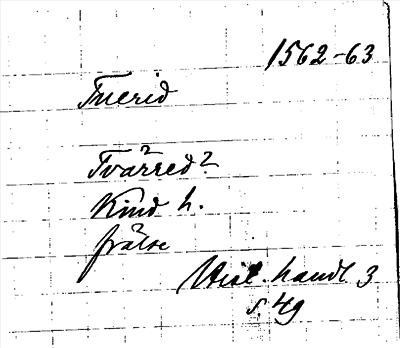 1562-63
Tuerid
Tvärred?
Kind h.
frälse
Hist. handl 3
s. 49